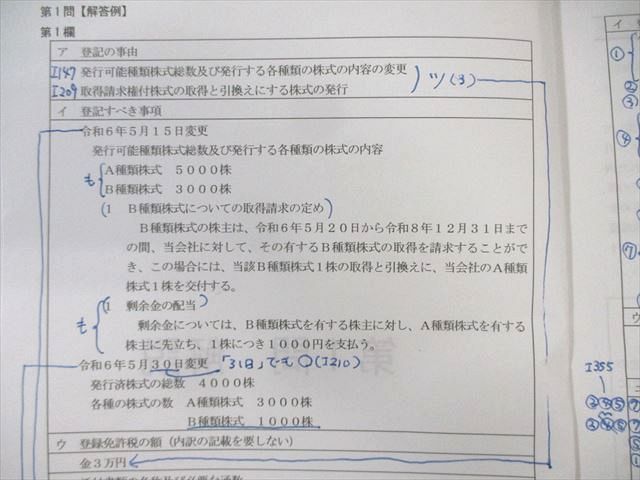 第1問【解答例】
第1欄
ア 登記の事由
I147 発行可能種類株式総数及び発行する各種類の株式の内容の変更
I209 取得請求権付株式の取得と引換えにする株式の発行
ツ(3)
イ 登記すべき事項
令和6年5月15日変更
発行可能種類株式総数及び発行する各種類の株式の内容
A種類株式 5000株
も
B種類株式 3000株
(1 B種類株式についての取得請求の定め)
B種類株式の株主は、令和6年5月20日から令和8年12月31日まで
の間、当会社に対して、その有するB種類株式の取得を請求することがで
き、この場合には、当該B種類株式1株の取得と引換えに、当会社のA種類
株式1株を交付する。
(1 剰余金の配当)
も
剰余金については、B種類株式を有する株主に対し、A種類株式を有する
株主に先立ち、1株につき1000円を支払う。
令和6年5月30日変更 「31日」でも○(I210)
発行済株式の総数 4000株
各種の株式の数 A種類株式 3000株
B種類株式 1000株
ウ 登録免許税の額(内訳の記載を要しない)
金3万円
イ
①
②
③
④
⑦
ウ
I355
②④⑤⑦
②④⑤⑦